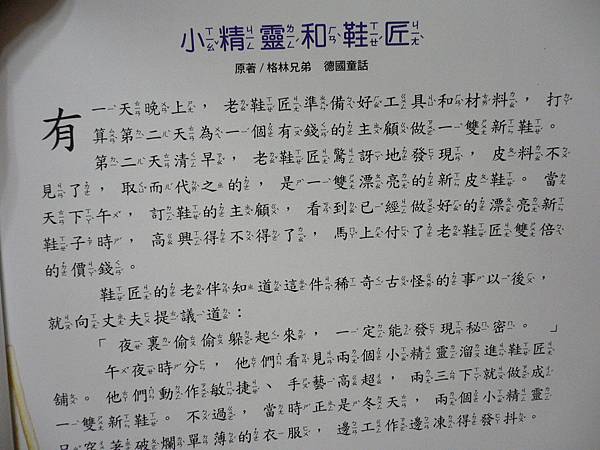 小精靈和鞋匠
原著/格林兄弟 德國童話
有一天晚上，老鞋匠準備好工具和材料，打
算第二天為一個有錢的主顧做一雙新鞋。
第二天清早，老鞋匠驚訝地發現，皮料不
見了，取而代之的，是一雙漂亮的新皮鞋。當
天下午，訂鞋的主顧，看到已經做好的漂亮新
鞋子時，高興得不得了，馬上付了老鞋匠雙倍
的價錢。
鞋匠的老伴知道這件稀奇古怪的事以後，
就向丈夫提議道：
「夜裏偷偷躲起來，一定能發現秘密。」
午夜時分，他們看見兩個小精靈溜進鞋匠
舖。他們動作敏捷、手藝高超，兩三下就做成
一雙新鞋。不過，當時正是冬天，兩個小精靈
只穿著破爛單薄的衣服，邊工作邊凍得發抖。